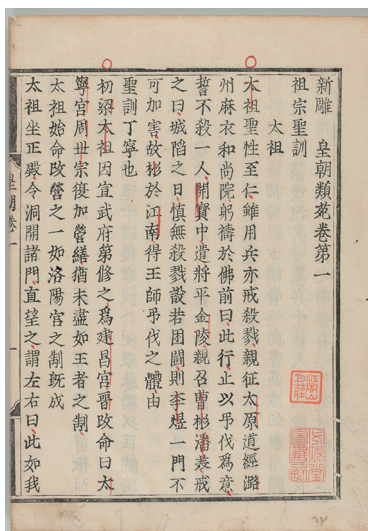 新雕　皇朝類苑卷第一
祖宗聖訓
太祖
太祖聖性至仁雖用兵亦戒殺戮親征太原道經潞
州麻衣和尚院躬禱於佛前曰此行止以弔伐爲意
誓不殺一人開寶中遣將平金陵親召曹彬潘美戒
之曰城陷之日慎無殺戮設若困鬪則李煜一門不
可加害故彬於江南得王師弔伐之體由
聖訓丁寧也
初梁太祖因宣武府第修之爲建昌宮晉改命曰大
寧宮周世宗復加營繕猶未盡如王者之制
太祖始命改營之一如洛陽宮之制既成
太祖坐正殿令洞開諸門直望之謂左右曰此如我
皇朝卷一